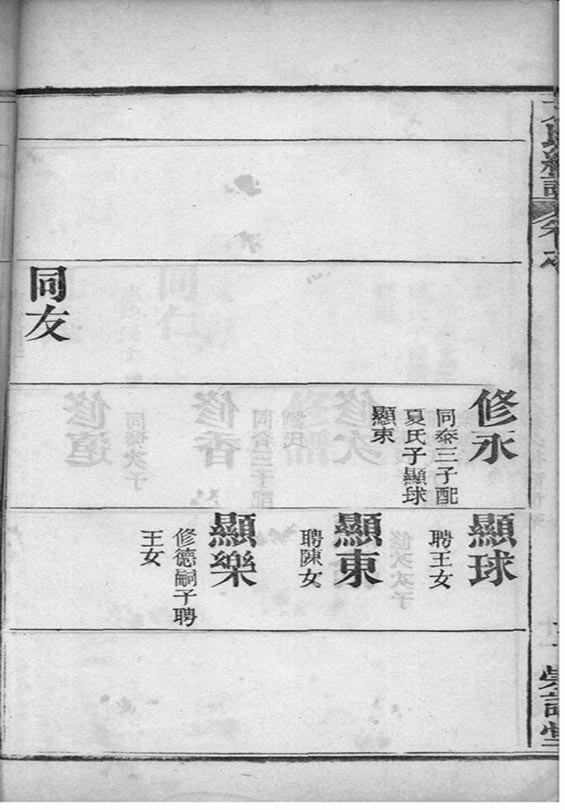 同友
修永
同泰三子配
夏氏子顯球
顯東
顯球
聘王女
顯東
聘陳女
顯樂
修德嗣子聘
王女